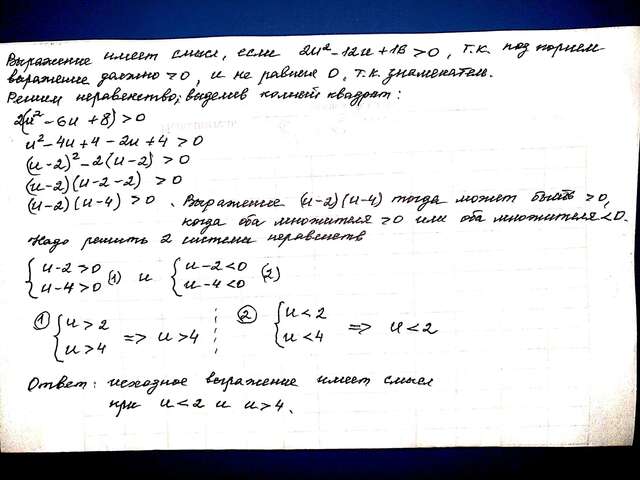 Выражение имеет смысл, если 2u²-12u+16>0, т.к. под корнем
выражение должно ≥0, и не равняя 0, т.к. знаменатель.
Решим неравенство, выделив полный квадрат:
2(u²-6u+8)>0
u²-4u+4-2u+4>0
(u-2)²-2(u-2)>0
(u-2)(u-2-2)>0
(u-2)(u-4)>0. Выражение (u-2)(u-4) тогда может быть >0,
когда оба множителя >0 или оба множителя <0.
Надо решить 2 системы неравенств
{u-2>0 u-4>0 (1) и {u-2<0 u-4<0 (2)
① {u>2 u>4 => u>4 ② {u<2 u<4 => u<2
Ответ: исходное выражение имеет смысл
при u<2 и u>4.